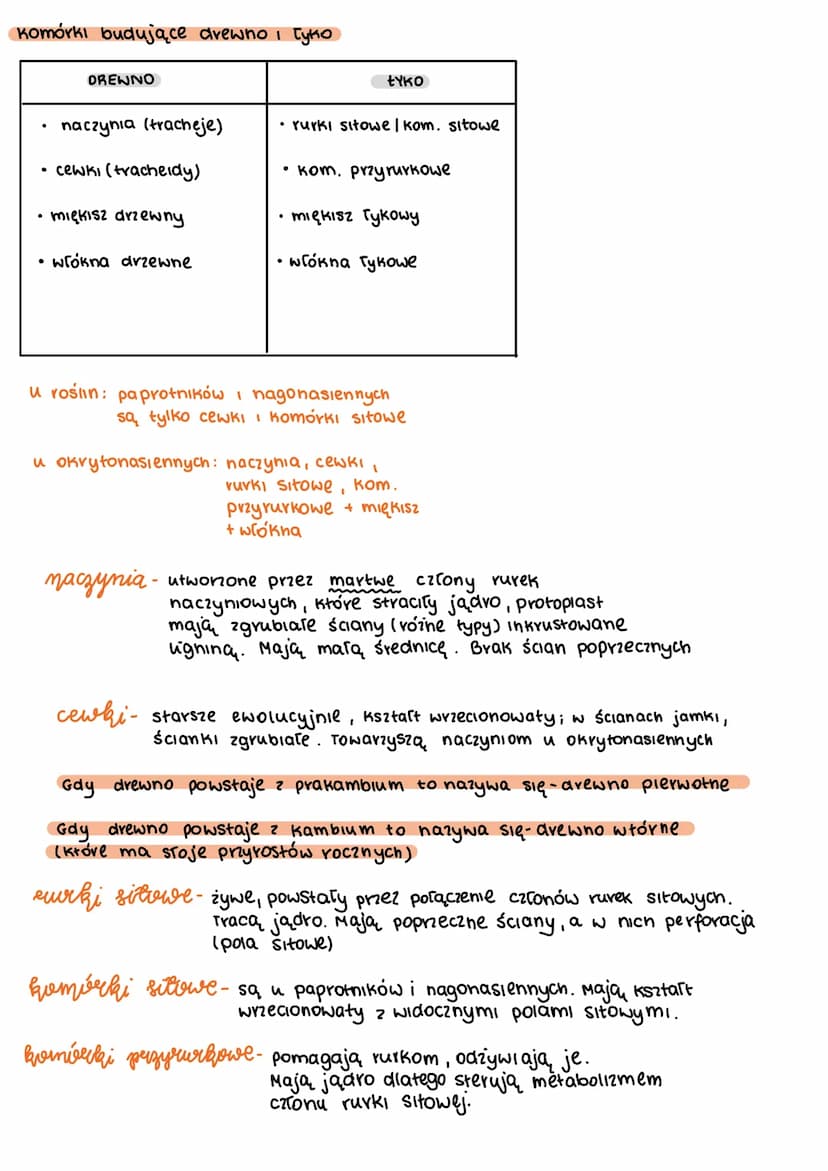 Komórki budujące drewno i łyko
DREWNO
ŁYKO
• naczynia (tracheje)
• rurki sitowe | kom. sitowe
• cewki (tracheidy)
• kom. przyrurkowe
• miękisz drzewny
• miękisz łykowy
• włókna drzewne
• włókna łykowe
u roślin: paprotników i nagonasiennych
są tylko cewki i komórki sitowe
u okrytonasiennych: naczynia, cewki,
rurki sitowe, kom.
przyrurkowe + miękisz
+ włókna
naczynia - utworzone przez martwe człony rurek
naczyniowych, które straciły jądro, protoplast
mają zgrubiałe ściany (różne typy) inkrustowane
ligniną. Mają małą średnicę. Brak ścian poprzecznych
cewki - starsze ewolucyjnie, kształt wrzecionowaty; w ścianach jamki,
ścianki zgrubiałe. Towarzyszą naczyniom u okrytonasiennych
Gdy drewno powstaje z prakambium to nazywa się - drewno pierwotne
Gdy drewno powstaje z kambium to nazywa się - drewno wtórne
(które ma słoje przyrostów rocznych)
rurki sitowe - żywe, powstały przez połączenie członów rurek sitowych.
Tracą jądro. Mają poprzeczne ściany, a w nich perforacja
(pola sitowe)
komórki sitowe - są u paprotników i nagonasiennych. Mają kształt
wrzecionowaty z widocznymi polami sitowymi.
komórki przyrurkowe - pomagają rurkom, odżywiają je.
Mają jądro dlatego sterują metabolizmem
członu rurki sitowej.